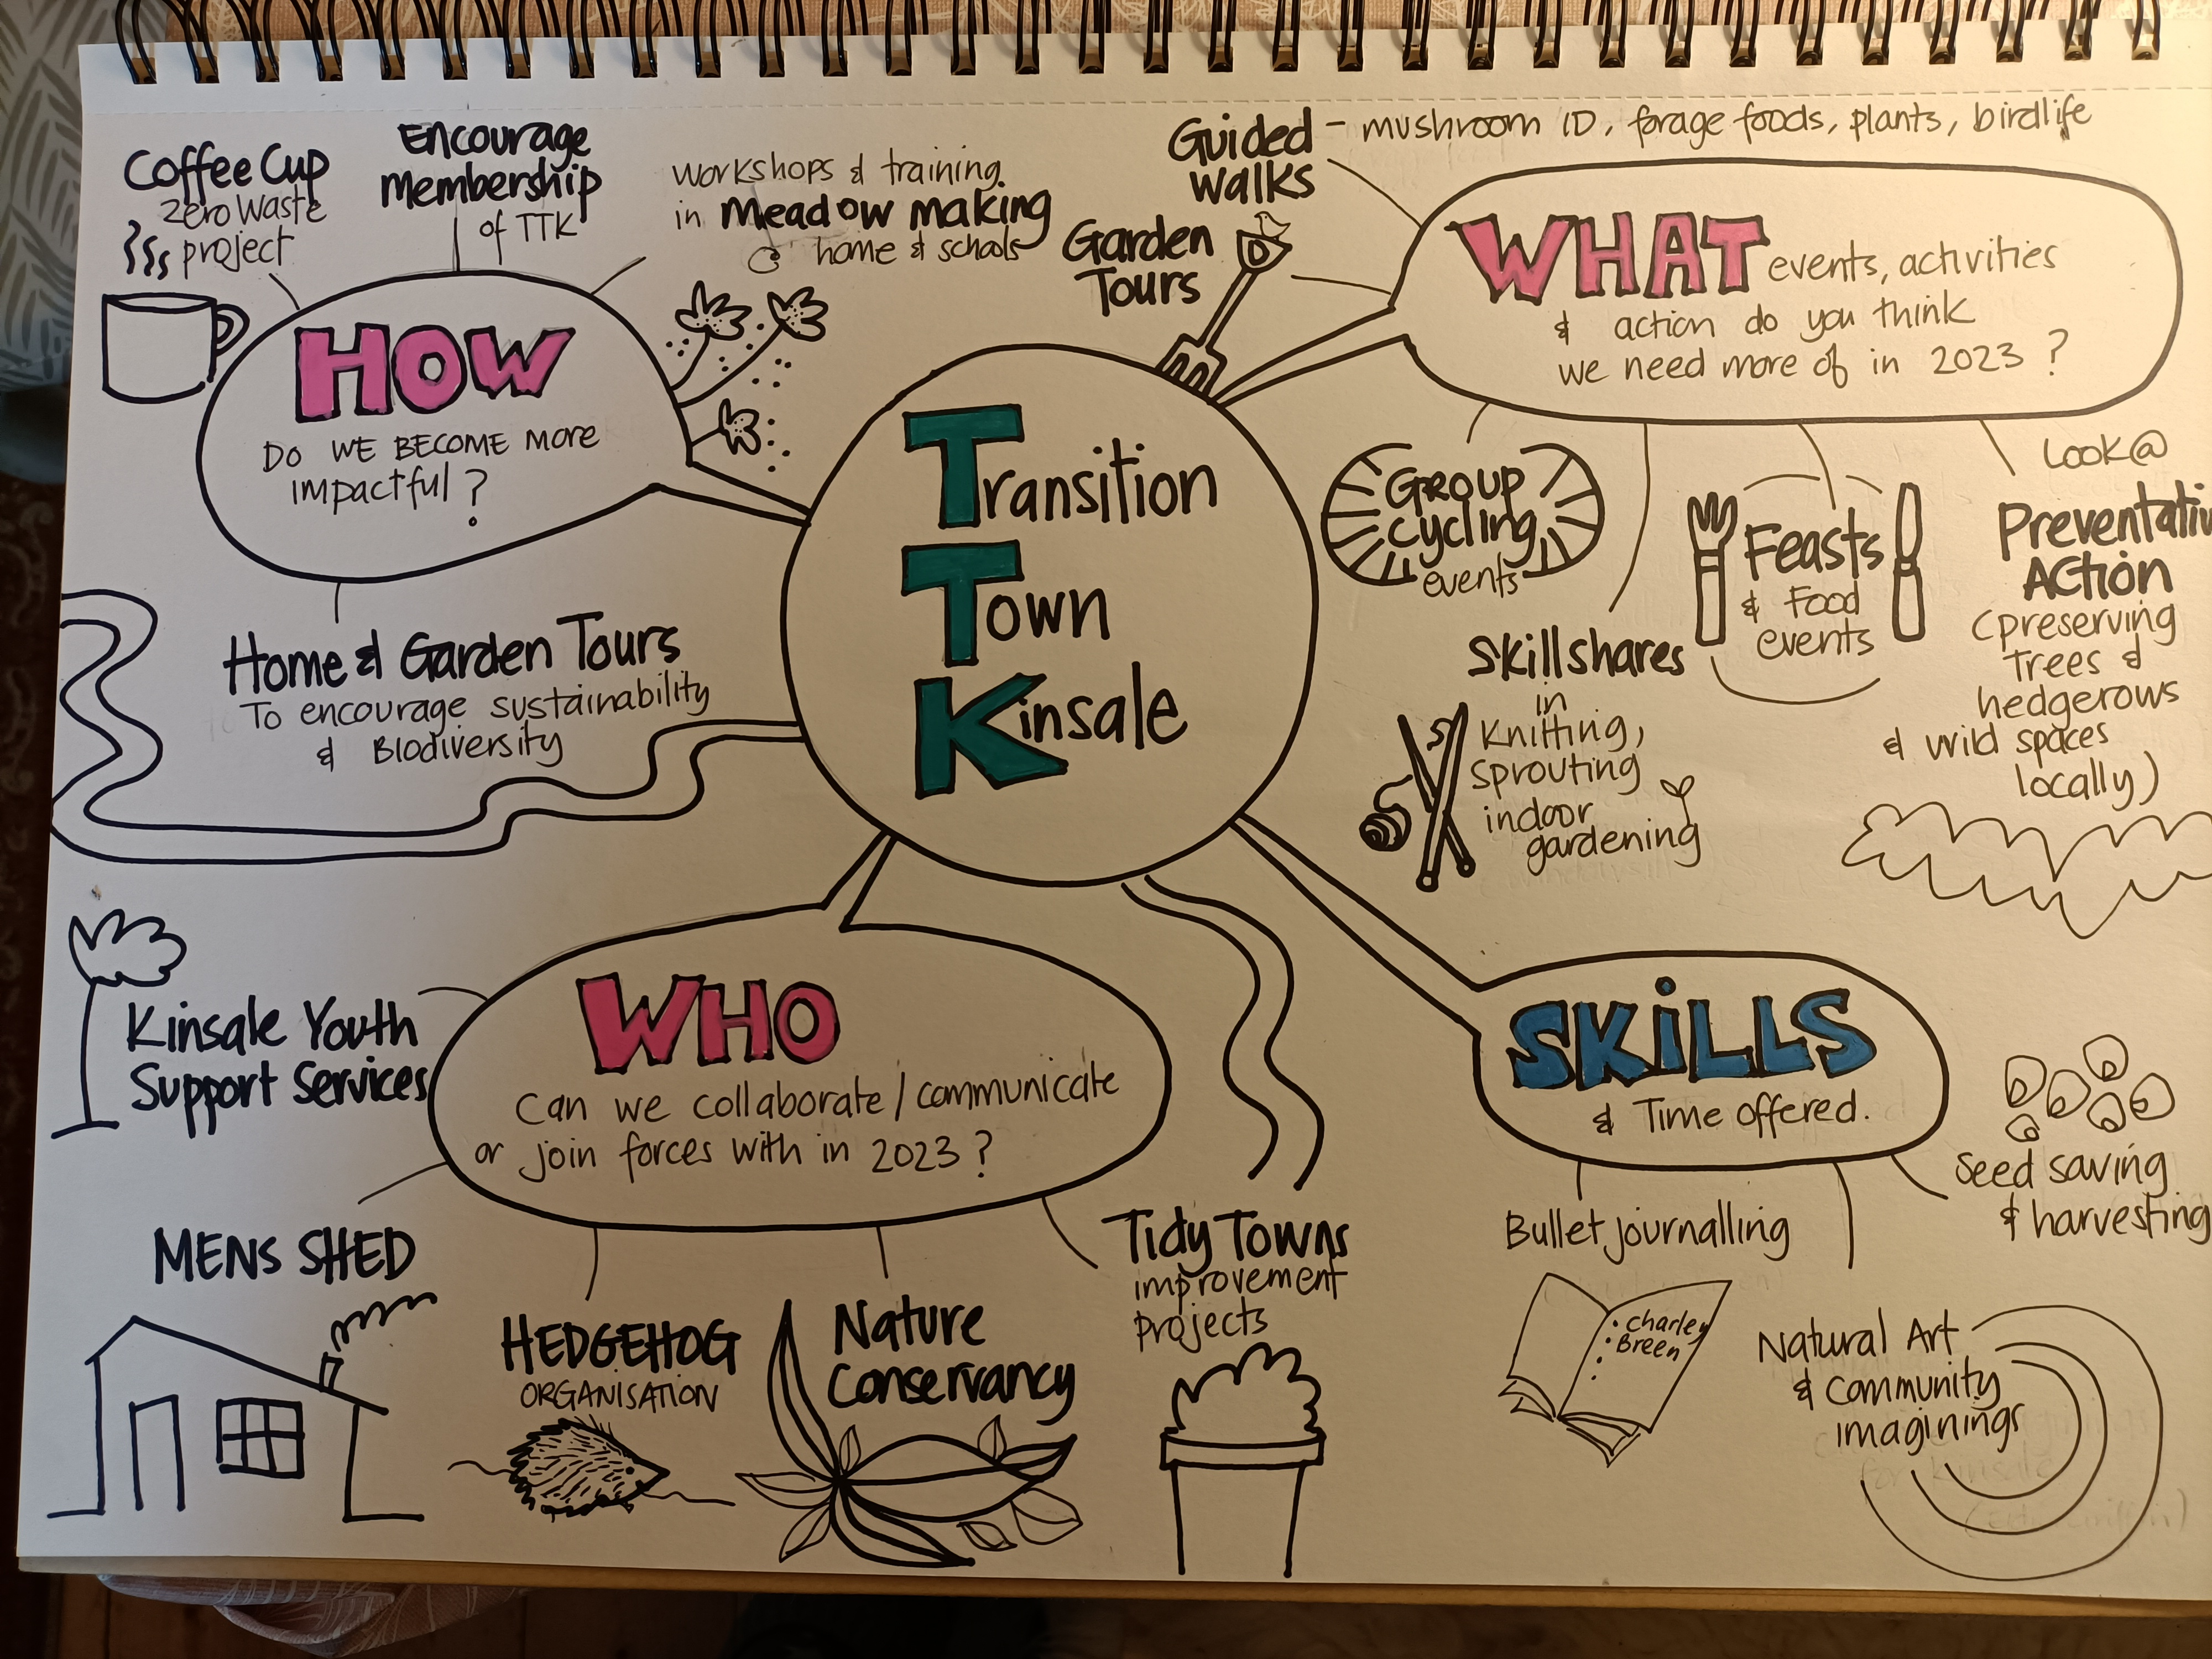 Coffee Cup
Zero Waste
project
Encourage
membership
of TTK
workshops & training
in meadow making
home & schools
HOW
Do WE BECOME More
impactful?
Home & Garden Tours
To encourage sustainability
& Biodiversity
Transition
Town
Kinsale
Guided - mushroom ID, forage foods, plants, birdlife
walks
Garden
Tours
WHAT events, activities
& action do you think
we need more of in 2023?
GROUP
Cycling
events
Skillshares
in
Knitting,
sprouting
indoor
gardening
Feasts
& Food
events
Look@
Preventativ
Action
(preserving
Trees &
hedgerows
& wild spaces
locally)
WHO
Can we collaborate/communicate
or join forces with in 2023?
Kinsale Youth
Support Services
MENS SHED
HEDGEHOG
ORGANISATION
Nature
Conservancy
Tidy Towns
improvement
projects
SKiLLS
& Time offered.
Bullet journalling
charley
Breen
Natural Art
& Community
imaginings
Seed saving
& harvesting